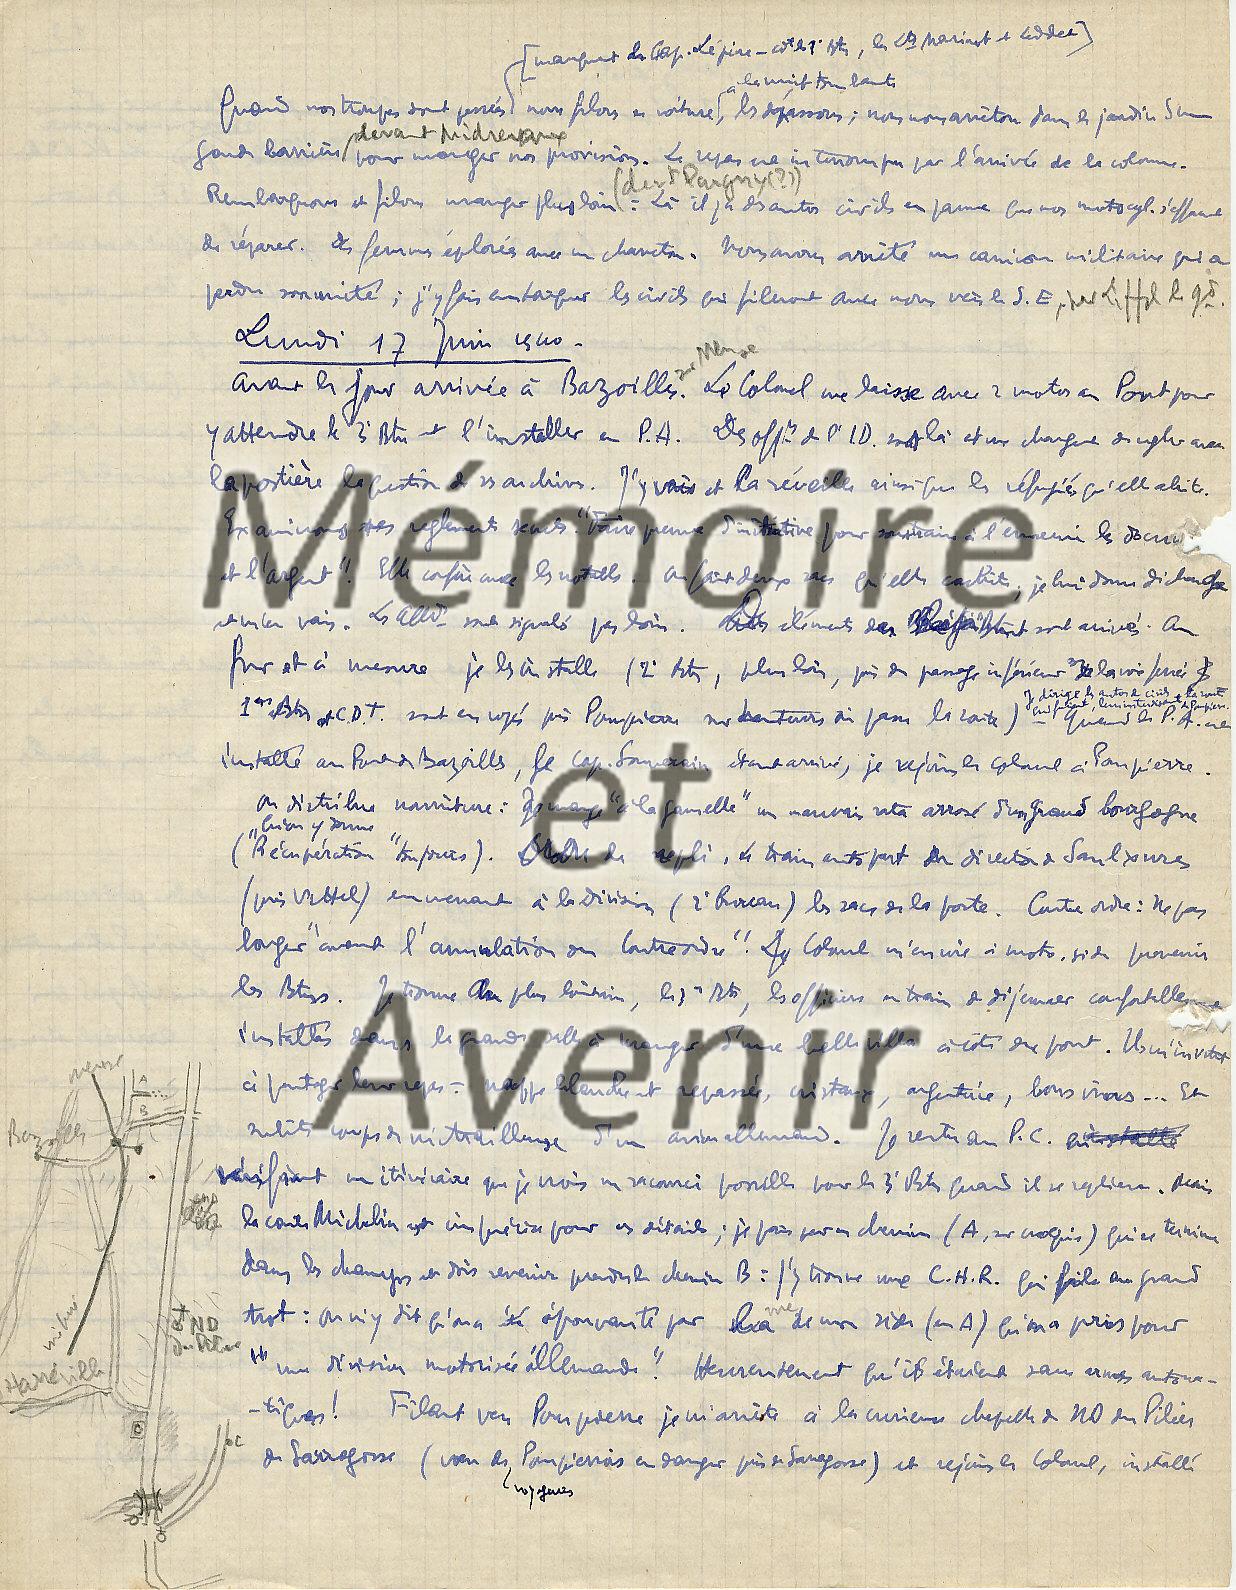 [manquent le Cap. Lépine - cdt le 1er Btn, les Lts Marinot et Leddet]
à la nuit tombante
Quand nos troupes sont passées nous filons en voiture, les dépassons ; nous nous arrêtons dans le jardin d'un
garde barrière devant Midrevaux pour manger nos provisions. Le repas est interrompu par l'arrivée de la colonne.
(devt Pargny (?))
Rembarquons et filons manger plus loin : Là il y a des autos civiles en panne que nos motocyl. s'efforcent
de réparer. des femmes éplorées avec un charreton. Nous avons arrêté un camion militaire qui a
perdu son unité ; j'y fais embarquer les civils qui fileront avec nous vers le S.E, par Liffol le Gd.
Lundi 17 Juin 1940 -
sur Meuse
Avant le jour arrivée à Bazoilles. Le Colonel me laisse avec 2 motos au Pont pour
y attendre le 3e Btn et l'installer en P.A. Des offrs de l'I.D. sont là et me chargent de régler avec
la postière la question de ses archives. J'y vais et la réveille ainsi que les réfugiés qu'elle abrite.
Examinons ses règlements secrets : "Faire preuve d'initiative pour soustraire à l'ennemi les
et l'argent". Elle confère avec les notables. On fait deux sacs qu'elle cachète ; je lui donne décharge
et m'en vais. Les Allds sont signalés pas loin. Des éléments des sont arrivés. Au
fur et à mesure je les installe (2e Btn, plus loin, près du passage inférieur de la voie ferrée
J'y dirige les autos de civils la route
1er Btn et C.D.T. sont envoyés près Pompierre sur hauteurs où passe la route) - Quand le P.A. est
installé au Pont de Bazoilles, le cap. Souverain étant arrivé, je rejoins le Colonel à Pompierre.
On distribue nourriture : Je mange "à la gamelle" un mauvais rata arrosé d'un grand bourgogne
qu'on y donne
("Récupération" toujours). Ordre de repli, le train auto part en direction de Saulxures
(près Vittel) emmenant à la Division (2e Bureau) les sacs de la poste. Contre ordre : Ne pas
bouger "avant l'annulation du Contreordre"! Le Colonel m'envoie à moto-side prévenir
les Btns. Je trouve au plus lointain, le 3e Btn, les officiers en train de déjeuner confortablement
installés dans la grande salle à manger d'une belle villa à côté du pont. Ils m'invitent
à partager leur repas - nappe blanche et repassée, cristaux, argenterie, bons vins... En
subits coups de mitrailleuse d'un avion allemand. Je rentre au P.C. installé
vérifiant un itinéraire que je crois un raccourci possible pour le 3e Btn quand il se repliera. Mais
la carte Michelin est imprécise pour ces détails ; je pars par un chemin (A, sur croquis) qui se termine
dans les champs et dois revenir prendre le chemin B : J'y trouve une C.H.R. qui file au grand
trot : on m'y dit qu'on a été épouvanté par la vue de mon side (en A) qu'on a pris pour
"une division motorisée allemande". Heureusement qu'ils étaient sans armes automa-
-tiques! Filant vers Pompierre je m'arrête à la curieuse chapelle de ND du Pilier
de Sarragosse (vœu de Pompierrois en danger près de Saragosse) et rejoins le Colonel, installé
voyageurs
meuse
A
B
Bazoilles
ND
du Pilier
Harréville
C